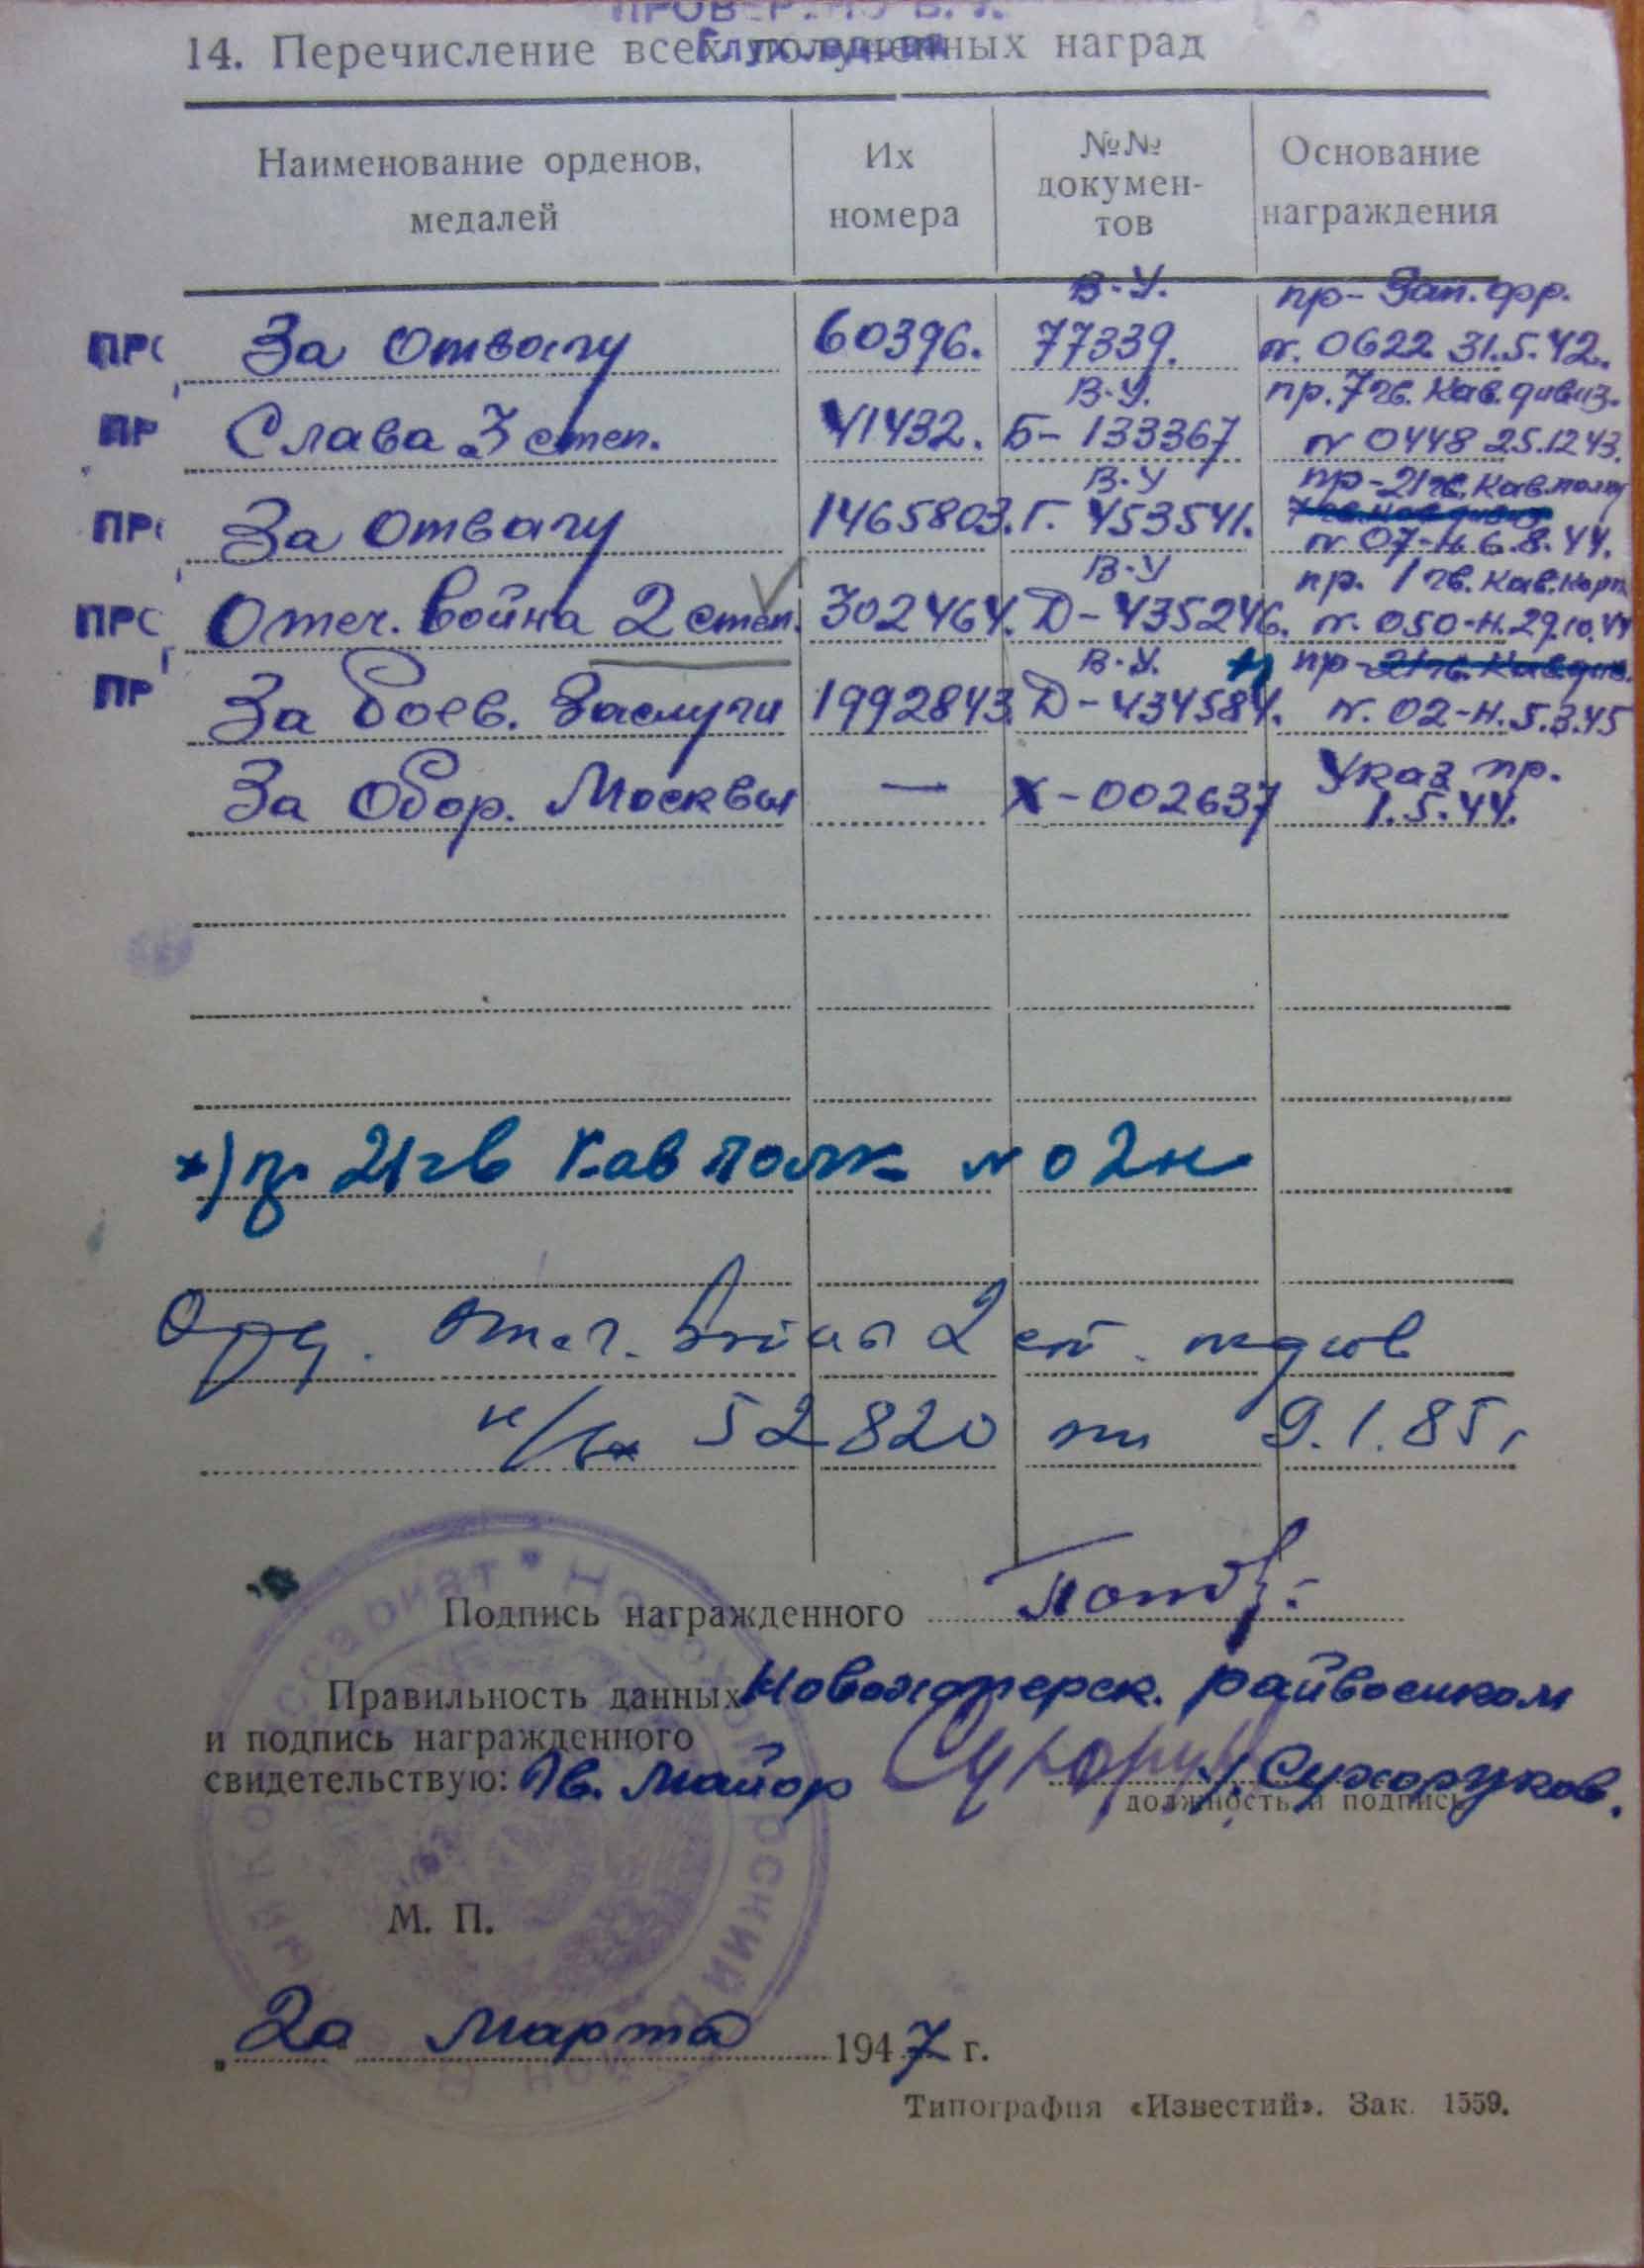 14. Перечисление всех полученных наград
Наименование орденов, медалей
Их номера
№№ докумен-тов
Основание награждения
В-У. пр- Зап. фр.
ПР За Отвагу 60396. 77339. №. 0622 31.5.42.
В-У. пр. 7 гв. Кав. дивиз.
ПР Слава 3 степ. 41432. Б- 133367 № 0448 25.12 43.
В-У пр-21 гв. Кав.полку
ПР За Отвагу 1465803. Г. 453541. № 07-н. 6.8.44.
В-У пр. 1 гв. Кав. Корп.
ПРС Отеч. Война 2 степ. 302464. Д-435246. №. 050-н. 29.10.44
В-У. пр-21 гв. Кав.див.
ПР За боев. Заслуги 1992843. Д-434584. №. 02-н. 5.3.45
За Обор. Москвы — Х-002637 Указ пр. 1.5.44.
*) пр 21 гв Кав полк № 02н
Орд. Отеч. война 2 ст.
52820 9.1.85г
Подпись награжденного
Правильность данных Новохоперск. райвоенком
и подпись награжденного
свидетельствую: Гв. Майор /Сухоруков.
должность и подпись
М. П.
20 Марта 1947 г.
Типография «Известий». Зак. 1559.